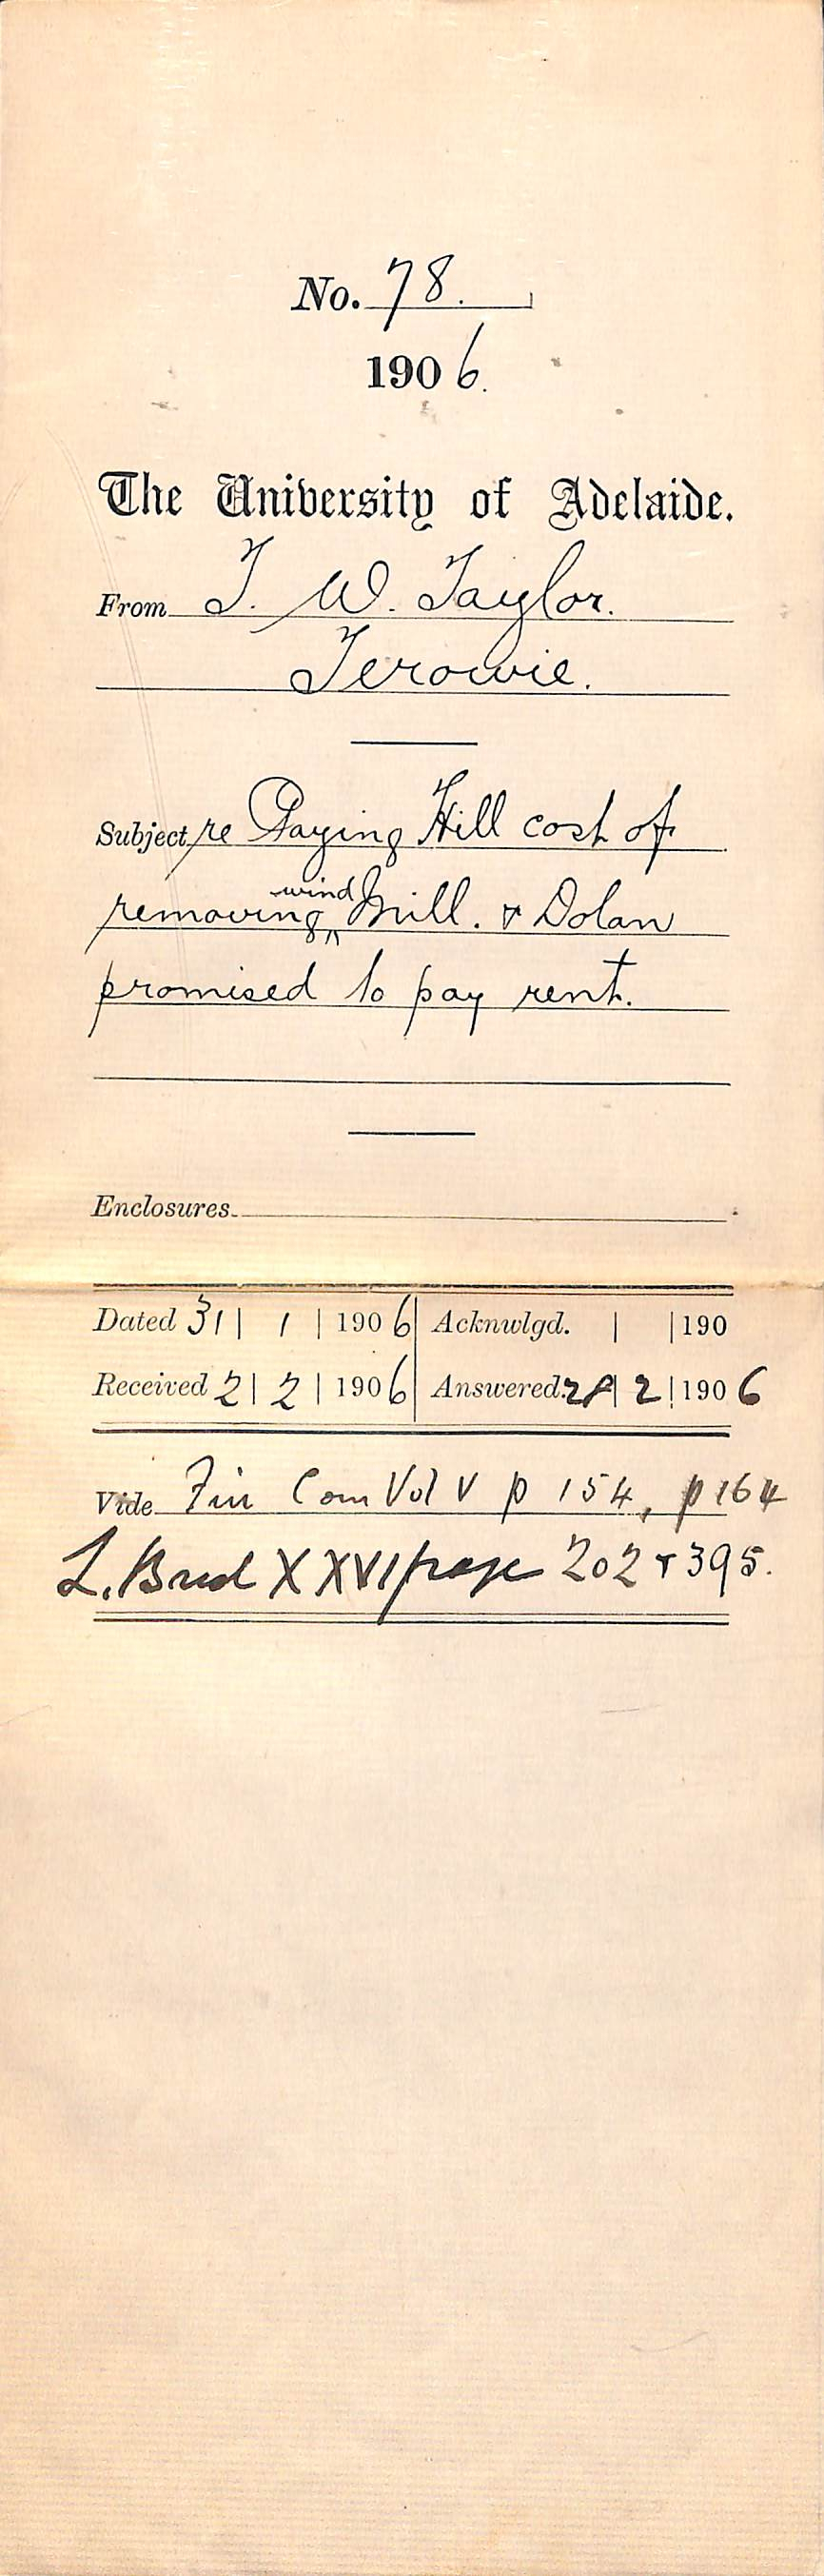 No. 78.
1906.
The University of Adelaide.
From T. W. Taylor.
Terowie.
Subject re Paying Hill cost of
removing wind Mill. & Dolan
promised to pay rent.
Enclosures
Dated 31 | 1 | 1906 Acknwlgd. | | 190
Received 2 | 2 | 1906 Answered | 2 | 1906
Vide Fin Com Vol V p 154, p 164
L. Bred XXVI page 202 & 395.